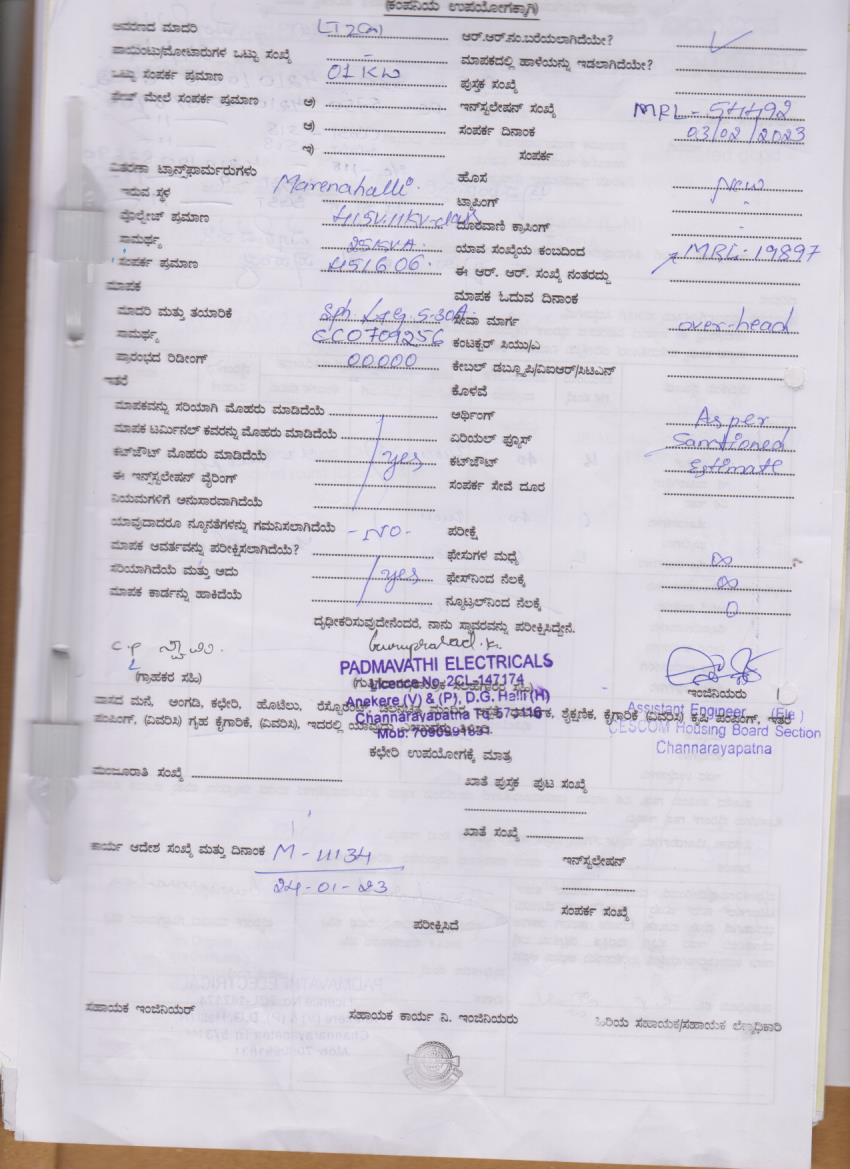 (ಕಂಪನಿಯ ಉಪಯೋಗಕ್ಕಾಗಿ)
ಆವರಣದ ಮಾದರಿ LT2(a) ಆರ್.ಆರ್.ನಂ.ಬರೆಯಲಾಗಿದೆಯೇ? ✓
ಪಾಯಿಂಟು/ಮೋಟಾರುಗಳ ಒಟ್ಟು ಸಂಖ್ಯೆ - ಮಾಪಕದಲ್ಲಿ ಹಾಳೆಯನ್ನು ಇಡಲಾಗಿದೆಯೇ?
ಒಟ್ಟು ಸಂಪರ್ಕ ಪ್ರಮಾಣ 01 KW ಪುಸ್ತಕ ಸಂಖ್ಯೆ
ಮೇಲೆ ಸಂಪರ್ಕ ಪ್ರಮಾಣ ಅ) ಇನ್‌ಸ್ಟಲೇಷನ್ ಸಂಖ್ಯೆ MRL-54492
ಆ) ಸಂಪರ್ಕ ದಿನಾಂಕ 03/02/2023
ಇ) ಸಂಪರ್ಕ
ವಿತರಣಾ ಟ್ರಾನ್ಸ್‌ಫಾರ್ಮರುಗಳು ಹೊಸ New
ಇರುವ ಸ್ಥಳ Marenahalli. ಟ್ಯಾಪಿಂಗ್ -
ವೋಲ್ಟೇಜ್ ಪ್ರಮಾಣ 415V.11KV-class ದೂರವಾಣಿ ಕ್ರಾಸಿಂಗ್ -
ಸಾಮರ್ಥ್ಯ 25KVA. ಯಾವ ಸಂಖ್ಯೆಯ ಕಂಬದಿಂದ MRL-19897
ಸಂಪರ್ಕ ಪ್ರಮಾಣ 451606. ಈ ಆರ್. ಆರ್. ಸಂಖ್ಯೆ ನಂತರದ್ದು
ಮಾಪಕ ಮಾಪಕ ಓದುವ ದಿನಾಂಕ
ಮಾದರಿ ಮತ್ತು ತಯಾರಿಕೆ Sph. L&G. 5-30A. ಸೇವಾ ಮಾರ್ಗ over-head
ಸಾಮರ್ಥ್ಯ CC0709256 ಕಂಟಕ್ಟರ್ ಸಿಯು/ಎ
ಪ್ರಾರಂಭದ ರಿಡಿಂಗ್ 00000 ಕೇಬಲ್ ಡಬ್ಲ್ಯೂಪಿ/ವಿಐಆರ್/ಸಿಟಿಎಸ್
ಇತರೆ ಕೊಳವೆ
ಮಾಪಕವನ್ನು ಸರಿಯಾಗಿ ಮೊಹರು ಮಾಡಿದೆಯೆ ಆರ್ಥಿಂಗ್ As per
ಮಾಪಕ ಟರ್ಮಿನಲ್ ಕವರನ್ನು ಮೊಹರು ಮಾಡಿದೆಯೆ ಏರಿಯಲ್ ಫ್ಯೂಸ್ Sanctioned
ಕಟ್‌ಔಟ್ ಮೊಹರು ಮಾಡಿದೆಯೆ yes ಕಟ್‌ಔಟ್ Estimate
ಈ ಇನ್‌ಸ್ಟಲೇಷನ್ ವೈರಿಂಗ್ ಸಂಪರ್ಕ ಸೇವೆ ದೂರ
ನಿಯಮಗಳಿಗೆ ಅನುಸಾರವಾಗಿದೆಯೆ
ಯಾವುದಾದರೂ ನ್ಯೂನತೆಗಳನ್ನು ಗಮನಿಸಲಾಗಿದೆಯೆ -No- ಪರೀಕ್ಷೆ
ಮಾಪಕ ಆವರ್ತವನ್ನು ಪರೀಕ್ಷಿಸಲಾಗಿದೆಯೆ? ಫೇಸುಗಳ ಮಧ್ಯೆ ∞
ಸರಿಯಾಗಿದೆಯೆ ಮತ್ತು ಅದು yes ಫೇಸ್‌ನಿಂದ ನೆಲಕ್ಕೆ ∞
ಮಾಪಕ ಕಾರ್ಡನ್ನು ಹಾಕಿದೆಯೆ ನ್ಯೂಟ್ರಲ್‌ನಿಂದ ನೆಲಕ್ಕೆ 0
ದೃಢೀಕರಿಸುವುದೇನೆಂದರೆ, ನಾನು ಸ್ಥಾವರವನ್ನು ಪರೀಕ್ಷಿಸಿದ್ದೇನೆ.
Guruprasad.K
PADMAVATHI ELECTRICALS
(ಗ್ರಾಹಕರ ಸಹಿ) Licence No. 2CL-147174 ಇಂಜಿನಿಯರು
Anekere (V) & (P), D.G. Halli (H) Assistant Engineer (Ele)
ವಾಸದ ಮನೆ, ಅಂಗಡಿ, ಕಛೇರಿ, ಹೋಟೆಲು, ಶೈಕ್ಷಣಿಕ, ಕೈಗಾರಿಕೆ (ವಿವರಿಸಿ) ಕೃಷಿ ಪಂಪಿಂಗ್, ಇತರ
Channarayapatna Tq. 573116 CESCOM Housing Board Section
ಪಂಪಿಂಗ್, (ವಿವರಿಸಿ) ಗೃಹ ಕೈಗಾರಿಕೆ, (ವಿವರಿಸಿ), ಇದರಲ್ಲಿ
Mob: Channarayapatna
ಕಛೇರಿ ಉಪಯೋಗಕ್ಕೆ ಮಾತ್ರ
ಮಂಜೂರಾತಿ ಸಂಖ್ಯೆ ಖಾತೆ ಪುಸ್ತಕ ಪುಟ ಸಂಖ್ಯೆ
ಖಾತೆ ಸಂಖ್ಯೆ
ಕಾರ್ಯ ಆದೇಶ ಸಂಖ್ಯೆ ಮತ್ತು ದಿನಾಂಕ M-11134 ಇನ್‌ಸ್ಟಲೇಷನ್
24-01-23
ಸಂಪರ್ಕ ಸಂಖ್ಯೆ
ಪರೀಕ್ಷಿಸಿದೆ
ಸಹಾಯಕ ಇಂಜಿನಿಯರ್ ಸಹಾಯಕ ಕಾರ್ಯ ನಿ. ಇಂಜಿನಿಯರು ಹಿರಿಯ ಸಹಾಯಕ/ಸಹಾಯಕ ಲೆಕ್ಕಾಧಿಕಾರಿ